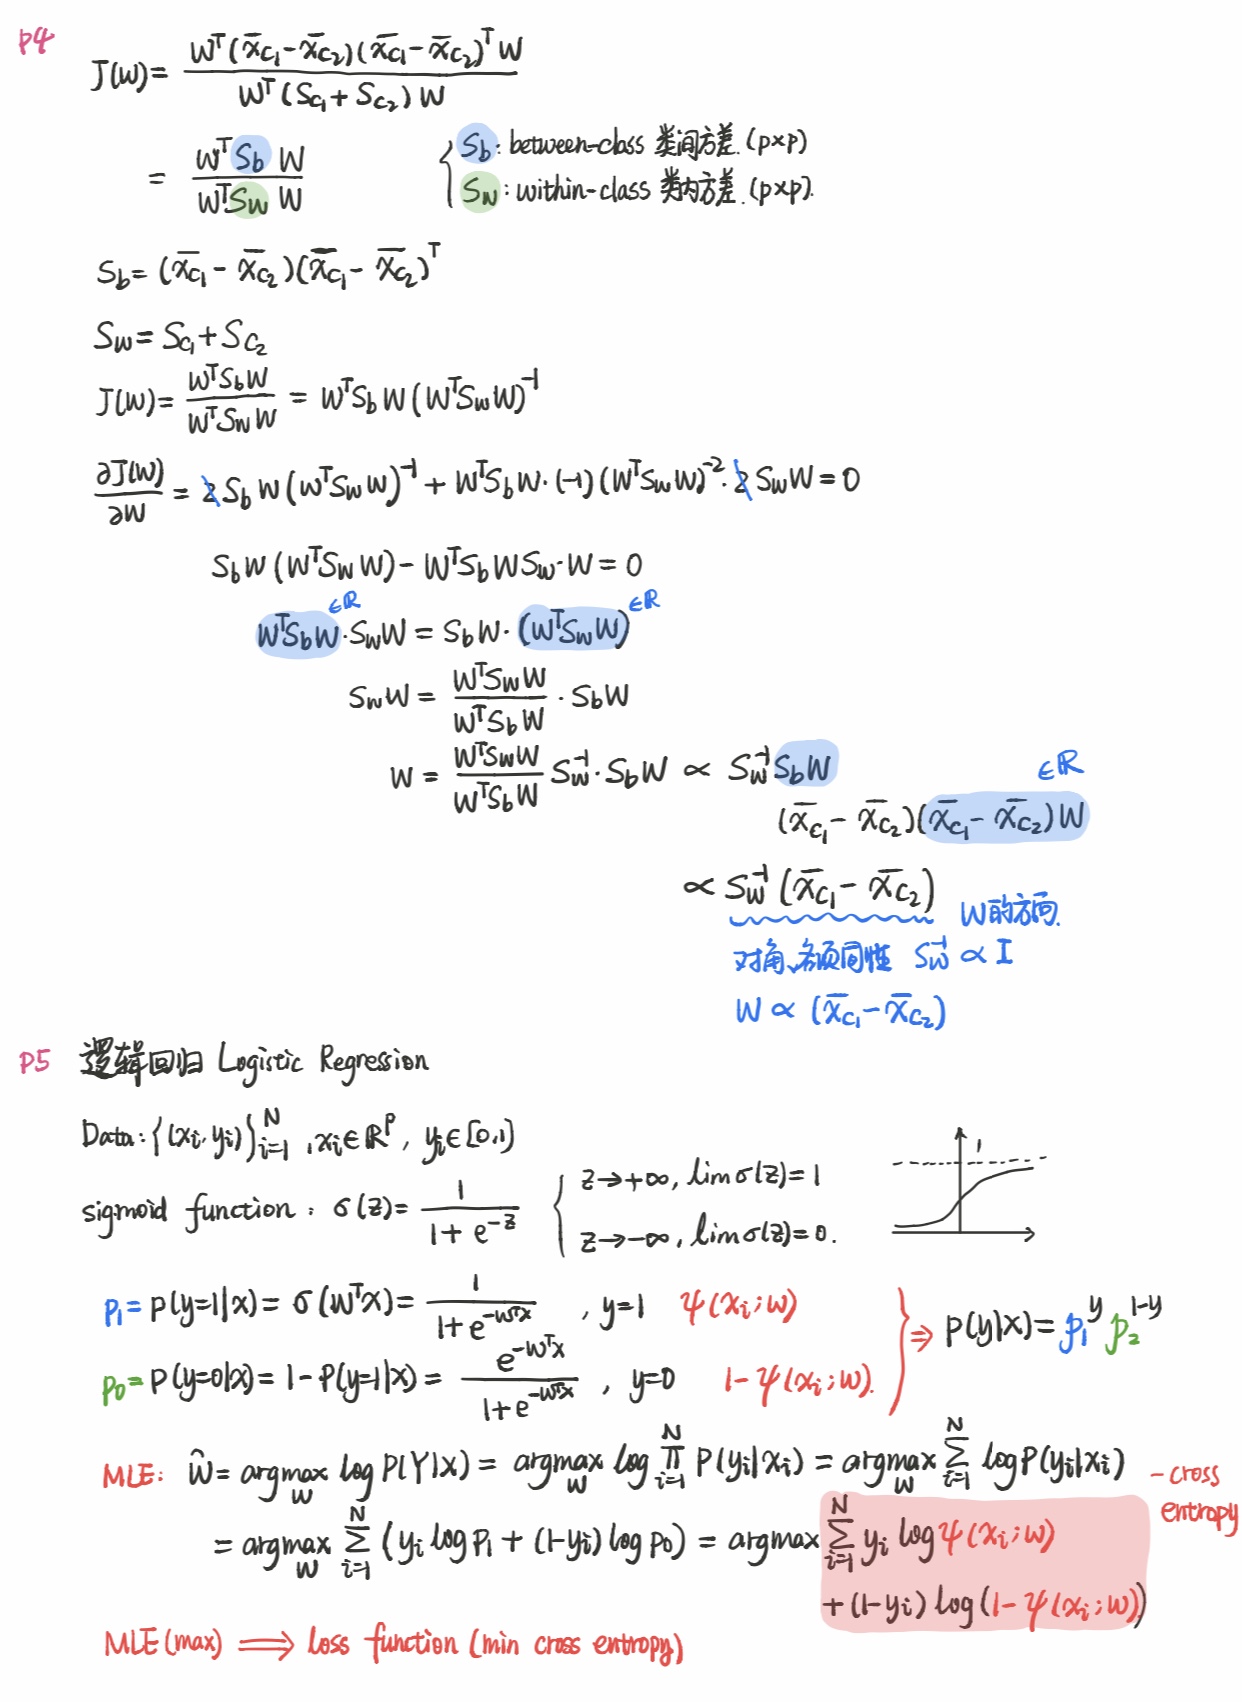 P4
J(W) = W^T(x̄_{C_1} - x̄_{C_2})(x̄_{C_1} - x̄_{C_2})^T W / W^T(S_{C_1} + S_{C_2})W
= W^T S_b W / W^T S_W W
{ S_b: between-class 类间方差. (p×p)
S_W: within-class 类内方差. (p×p).
S_b = (x̄_{C_1} - x̄_{C_2})(x̄_{C_1} - x̄_{C_2})^T
S_W = S_{C_1} + S_{C_2}
J(W) = W^T S_b W / W^T S_W W = W^T S_b W (W^T S_W W)^{-1}
∂J(W)/∂W = 2 S_b W (W^T S_W W)^{-1} + W^T S_b W · (-1)(W^T S_W W)^{-2} · 2 S_W W = 0
S_b W (W^T S_W W) - W^T S_b W S_W · W = 0
∈ℝ ∈ℝ
W^T S_b W · S_W W = S_b W · (W^T S_W W)
S_W W = W^T S_W W / W^T S_b W · S_b W
W = W^T S_W W / W^T S_b W S_W^{-1} · S_b W ∝ S_W^{-1} S_b W
∈ℝ
(x̄_{C_1} - x̄_{C_2})(x̄_{C_1} - x̄_{C_2})W
∝ S_W^{-1} (x̄_{C_1} - x̄_{C_2})
W的方向.
对角、各项同性 S_W^{-1} ∝ I
W ∝ (x̄_{C_1} - x̄_{C_2})
P5 逻辑回归 Logistic Regression
Data: {(x_i, y_i)}_{i=1}^N , x_i ∈ ℝ^p, y_i ∈ {0,1}
sigmoid function: σ(z) = 1 / 1 + e^{-z}
{ z→+∞, lim σ(z) = 1
z→-∞, lim σ(z) = 0.
1
p_1 = p(y=1|x) = σ(W^T x) = 1 / 1 + e^{-W^T x} , y=1 ψ(x_i; w)
p_0 = p(y=0|x) = 1 - P(y=1|x) = e^{-W^T x} / 1 + e^{-W^T x} , y=0 1 - ψ(x_i; w).
} ⇒ p(y|x) = p_1^y p_2^{1-y}
MLE: Ŵ = argmax_W log P(Y|X) = argmax_W log ∏_{i=1}^N P(y_i|x_i) = argmax_W ∑_{i=1}^N log P(y_i|x_i)
- cross
entropy
= argmax_W ∑_{i=1}^N (y_i log p_1 + (1-y_i) log p_0) = argmax ∑_{i=1}^N y_i log ψ(x_i; w)
+ (1-y_i) log (1 - ψ(x_i; w))
MLE (max) ⟹ loss function (min cross entropy)